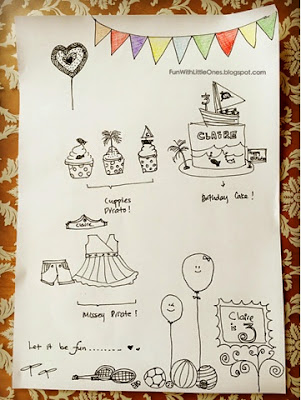 FunWithLittleOnes.blogspot.com
CLAIRE
Cuppies
Pirate!
Birthday Cake!
Claire
Missey Pirate!
Claire
is
3
Let it be fun.........